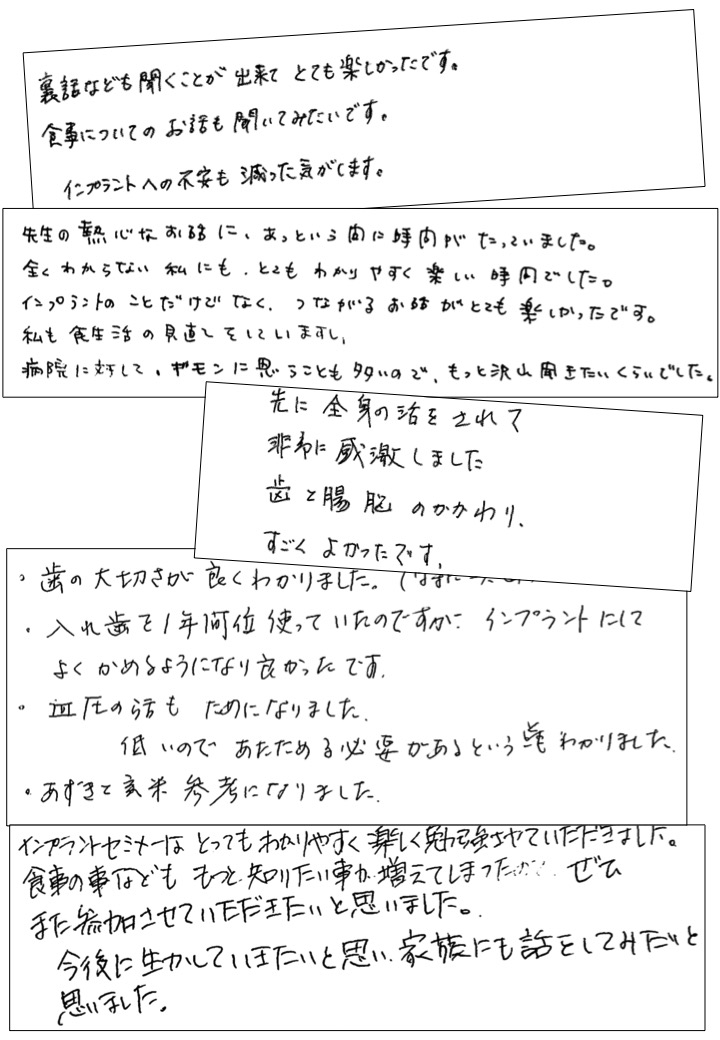 裏話なども聞くことが出来てとても楽しかったです。
食事についてのお話も聞いてみたいです。
インプラントへの不安も減った気がします。
先生の熱心なお話に、あっという間に時間がたっていました。
全くわからない私にも、とてもわかりやすく楽しい時間でした。
インプラントのことだけでなく、つながるお話がとても楽しかったです。
私も食生活の見直しをしていますし、
病院に対して、ギモンに思うことも多いので、もっと沢山聞きたいくらいでした。
先に全身の話をされて
非常に感激しました
歯と腸脳のかかわり、
すごくよかったです。
・歯の大切さが良くわかりました。
・入れ歯を1年何位使っていたのですが インプラントにして
よくかめるようになり良かったです。
・血圧の話もためになりました。
低いのであたためる必要があるという わかりました。
・あずきと玄米参考になりました。
インプラントセミナーはとってもわかりやすく楽しく勉強させていただきました。
食事の事などももっと知りたい事が増えてしまった ぜひ
また参加させていただきたいと思いました。
今後に生かしていきたいと思い、家族にも話をしてみたいと
思いました。